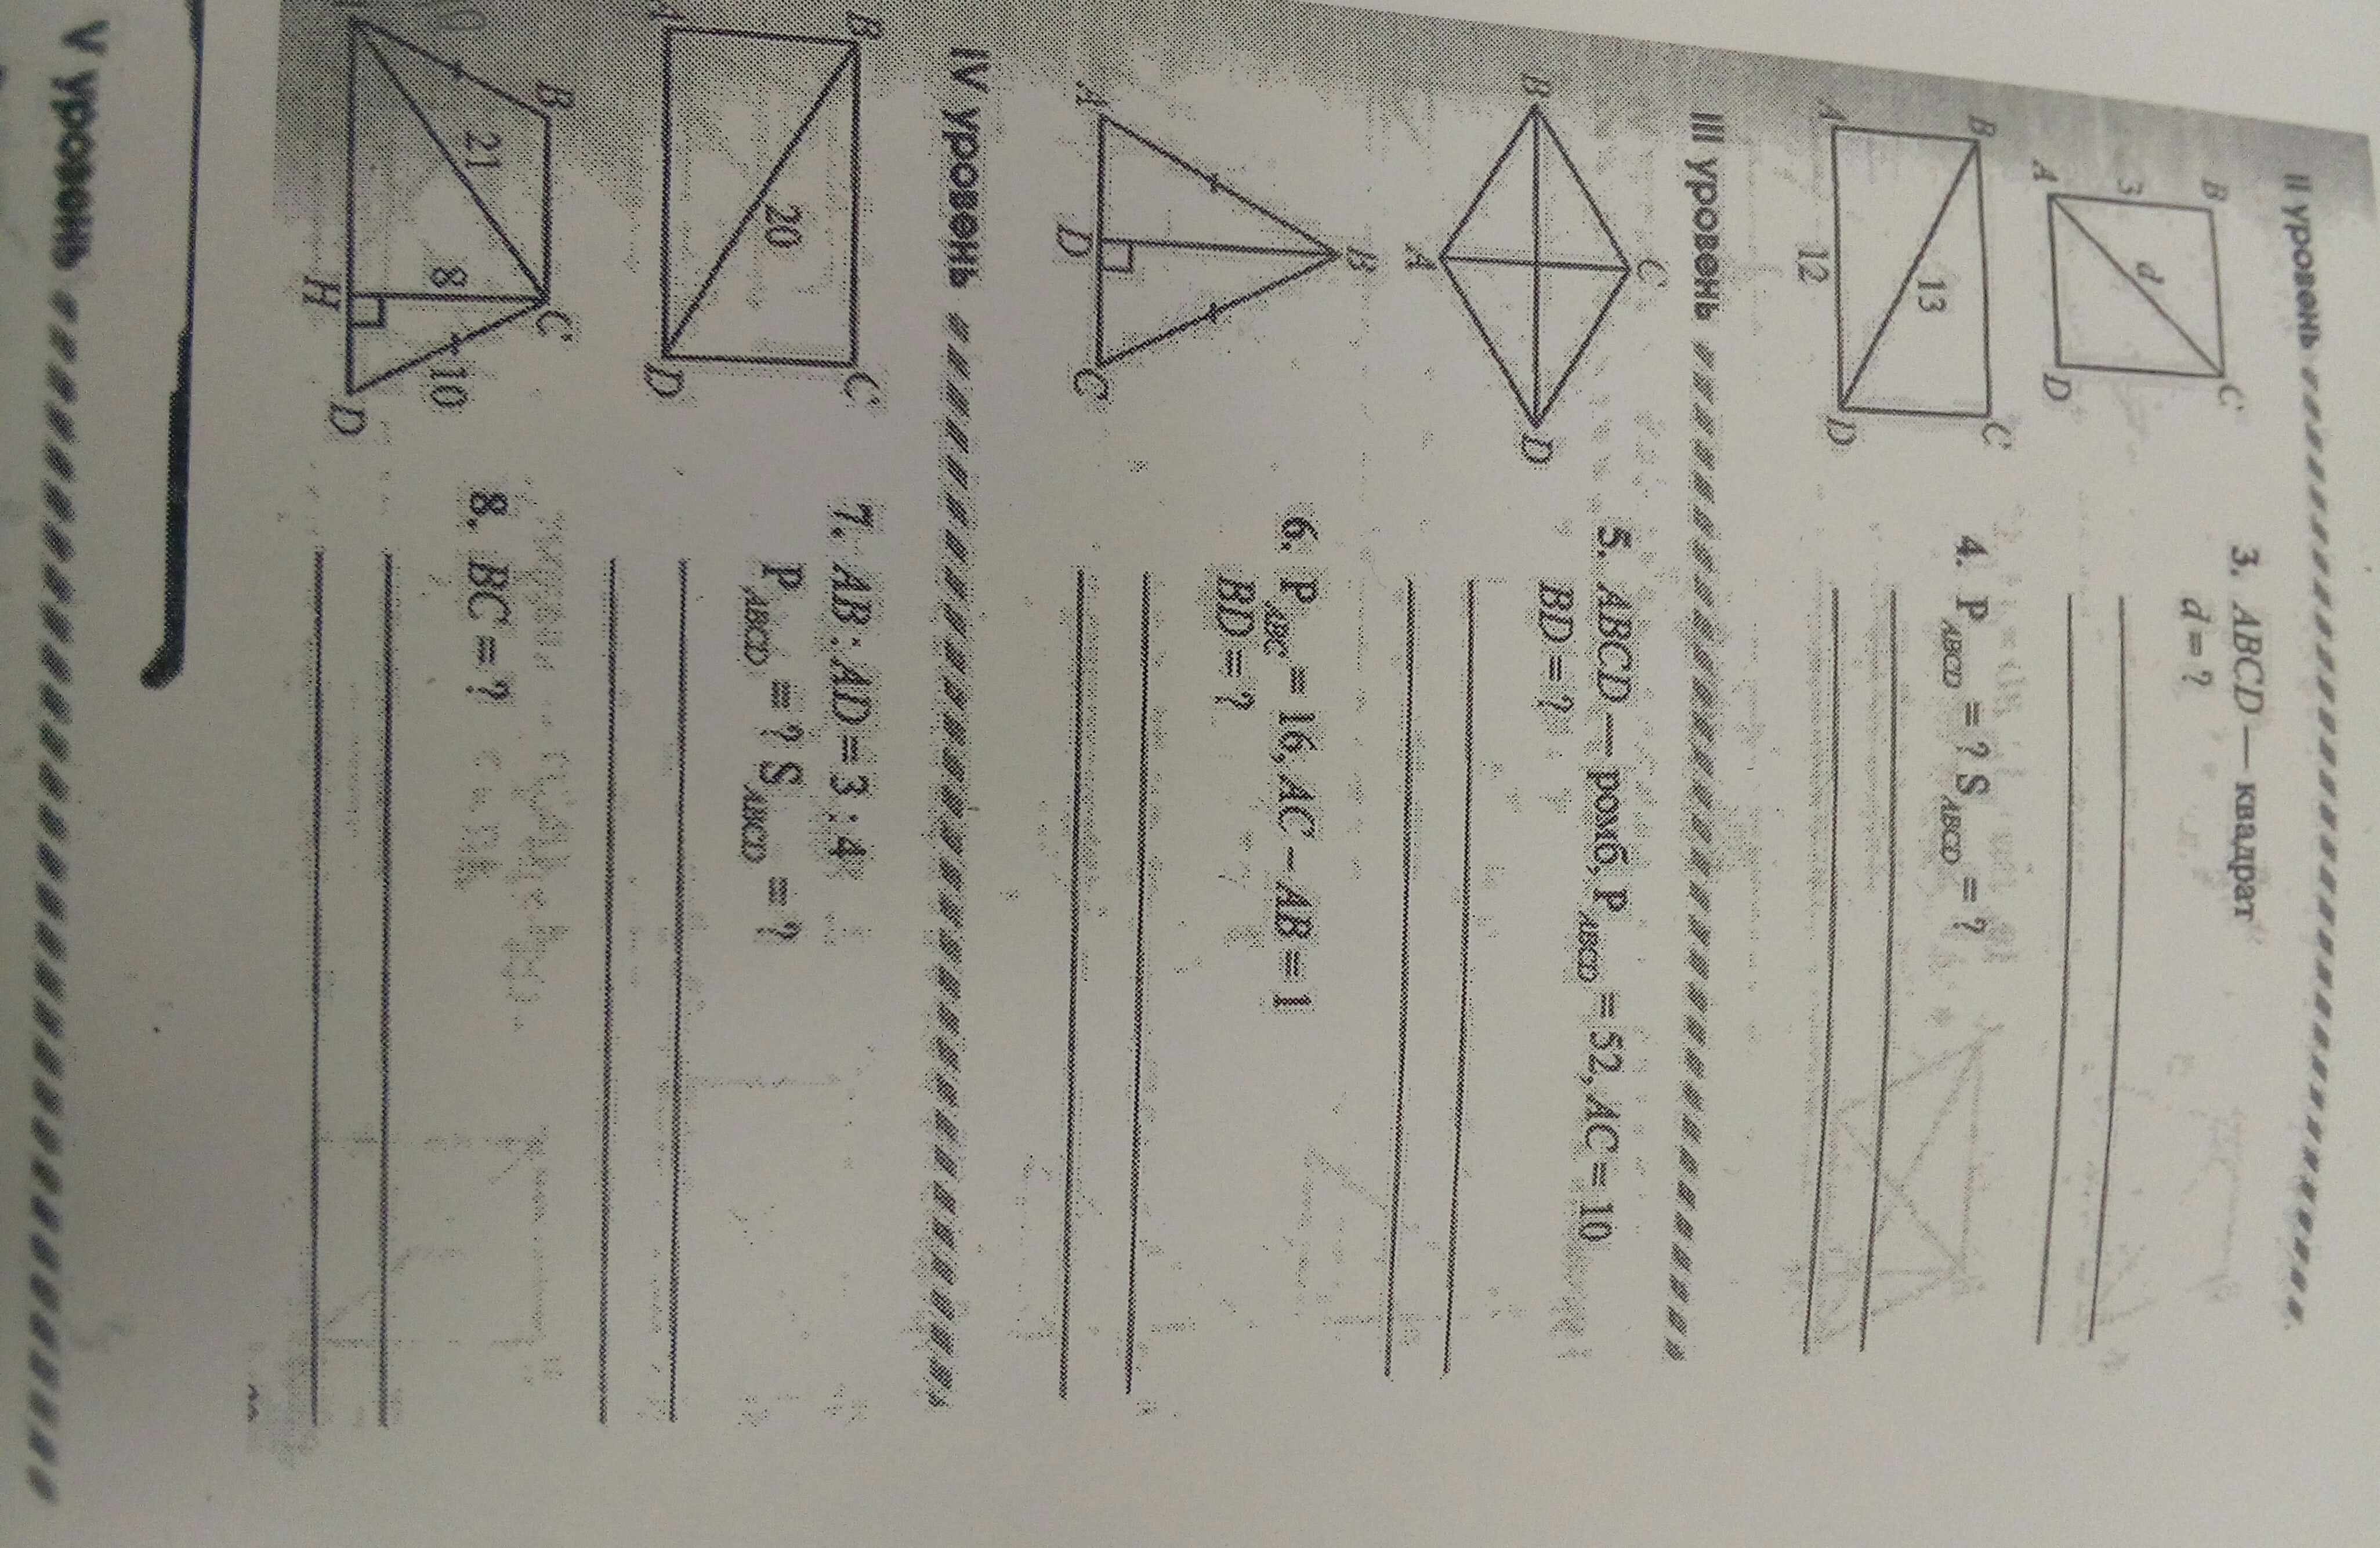 II уровень
B
C
3
d
A
D
3. ABCD — квадрат
d = ?
B
C
13
A
12
D
4. P ABCD = ? S ABCD = ?
III уровень
C
B
D
A
5. ABCD — ромб, P ABCD = 52, AC = 10
BD = ?
B
A
D
C
6. P ABC = 16, AC – AB = 1
BD = ?
IV уровень
B
C
20
A
D
7. AB : AD = 3 : 4
P ABCD = ? S ABCD = ?
B
C
21
8
10
H
D
8. BC = ?
V уровень